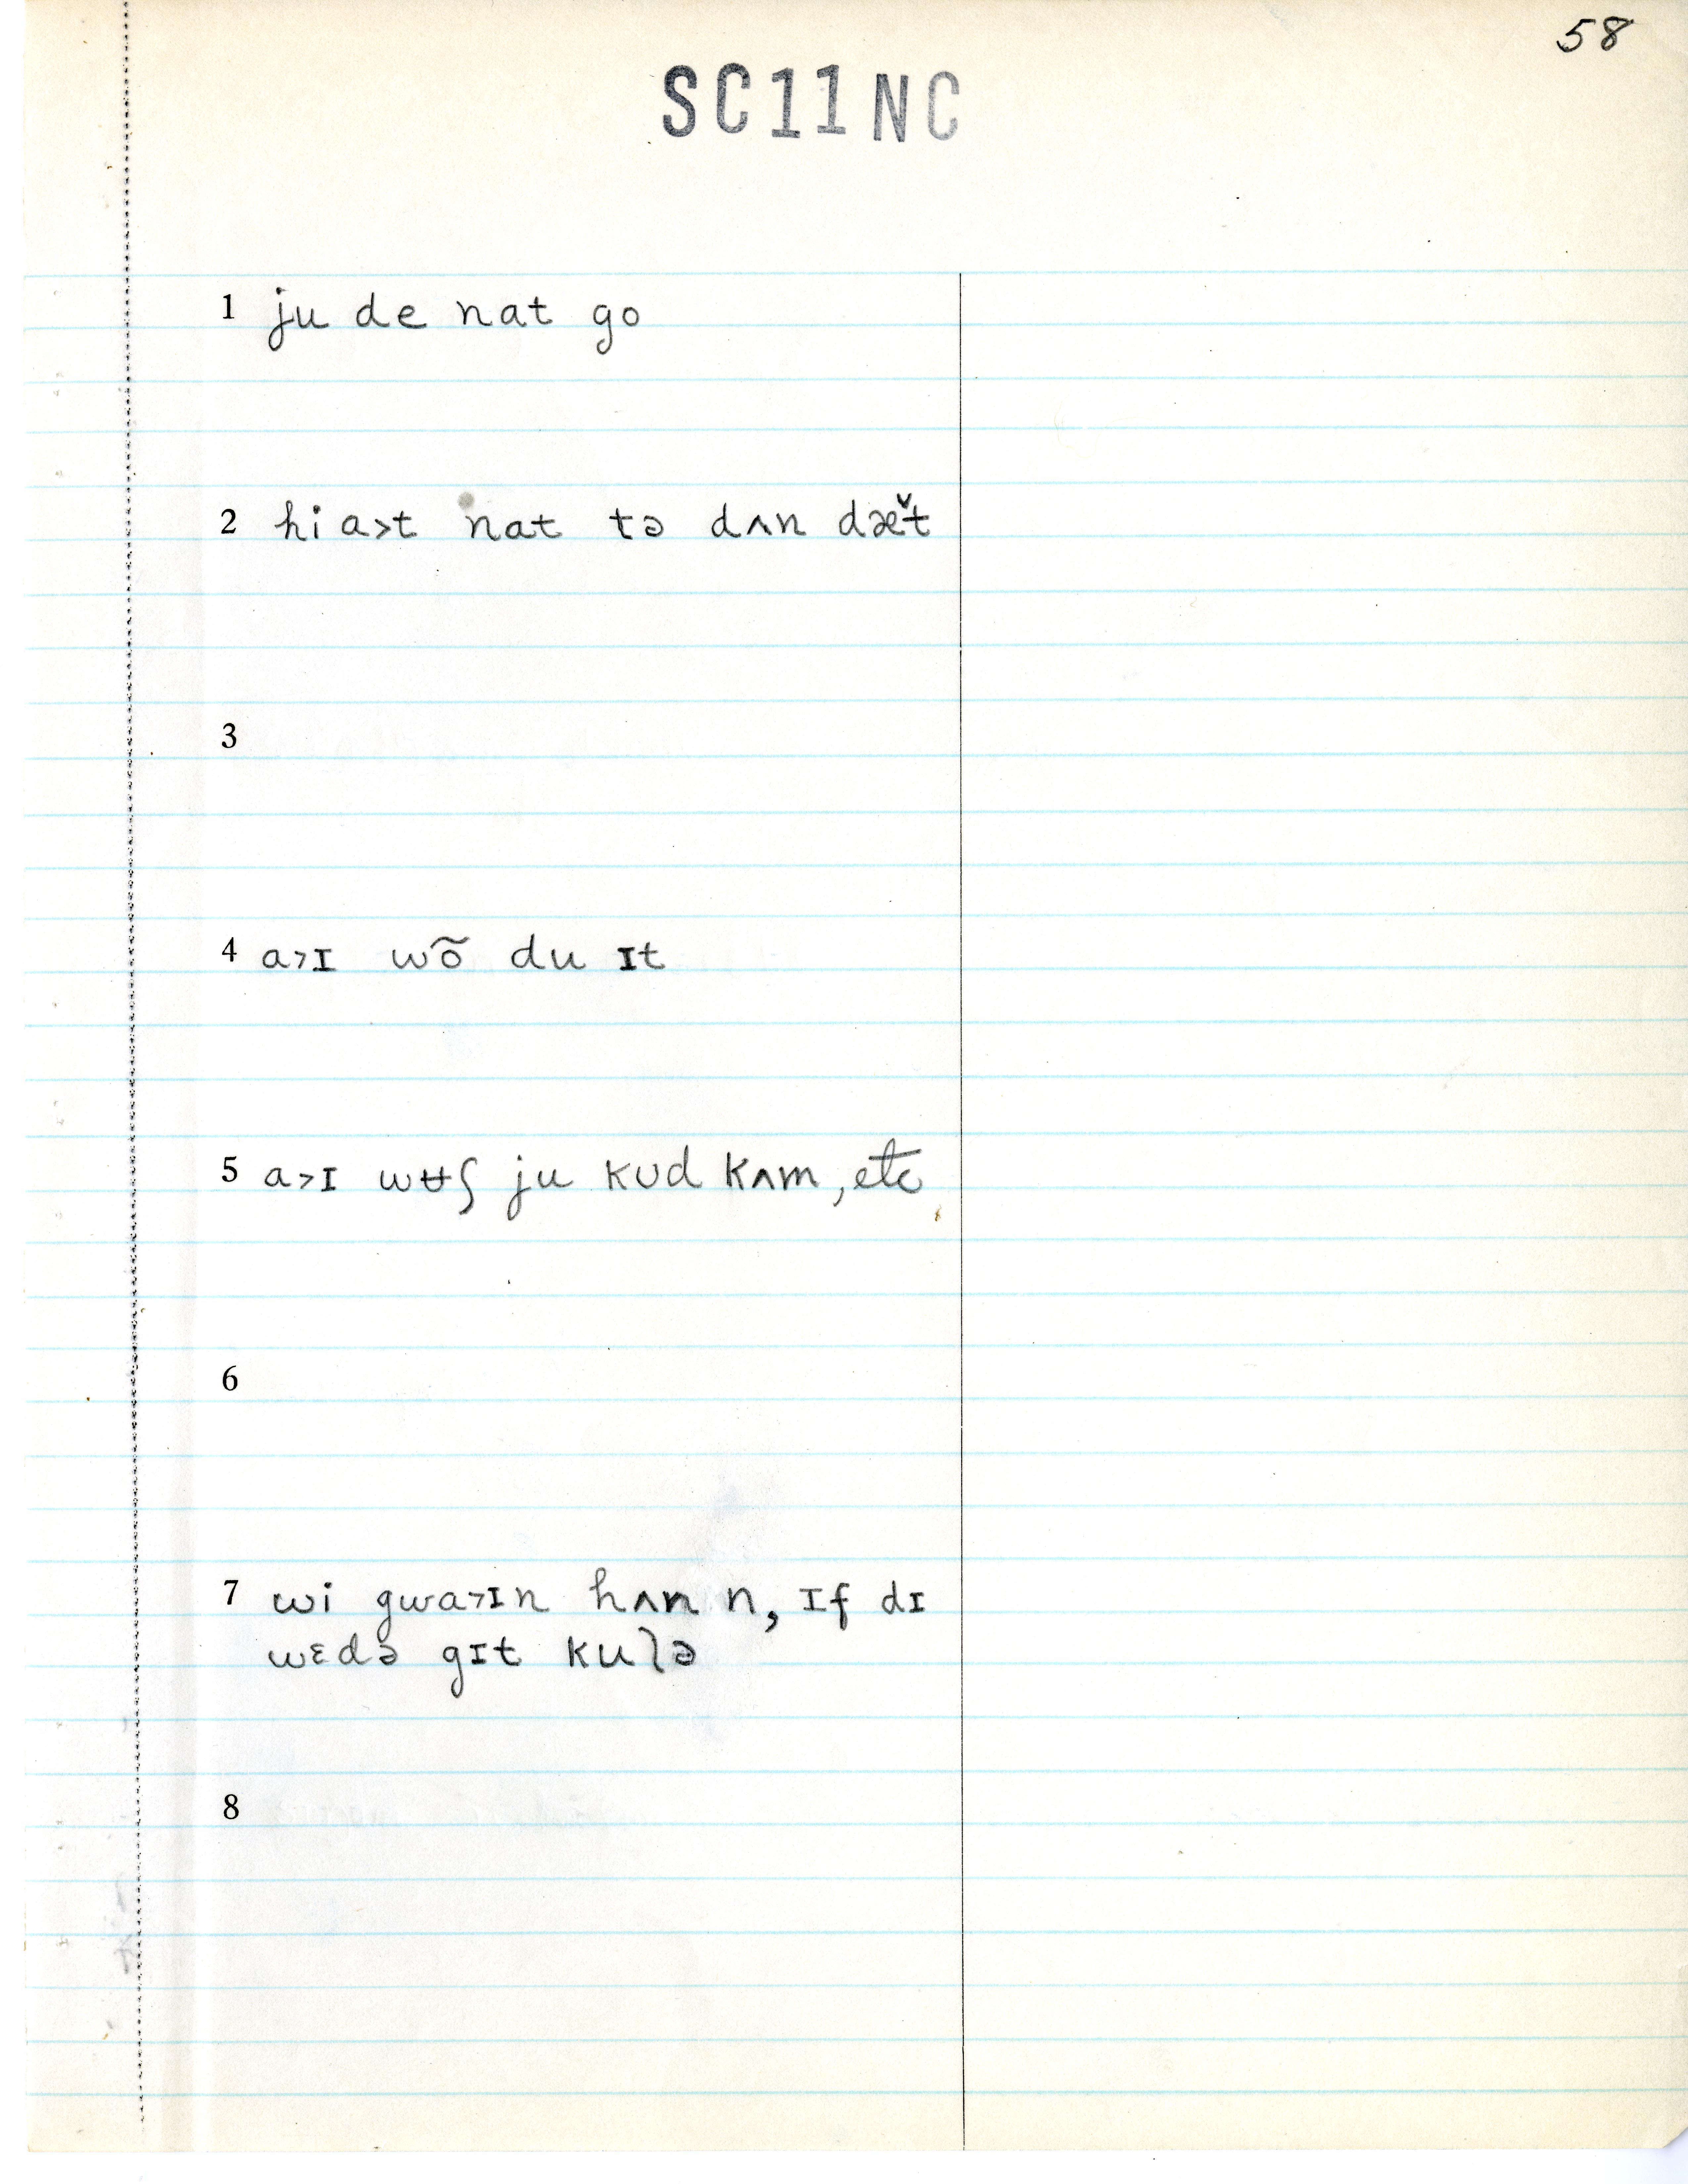 58
SC11NC
1 ju de nat go
2 hi a>t nat tə dʌn dæ̌t
3
4 a>ɪ wõ du ɪt
5 a>ɪ wʉʃ ju kʊd kʌm, etc
6
7 wi gwa>ɪn hʌn n, ɪf dɪ
wɛdə gɪt kulə
8